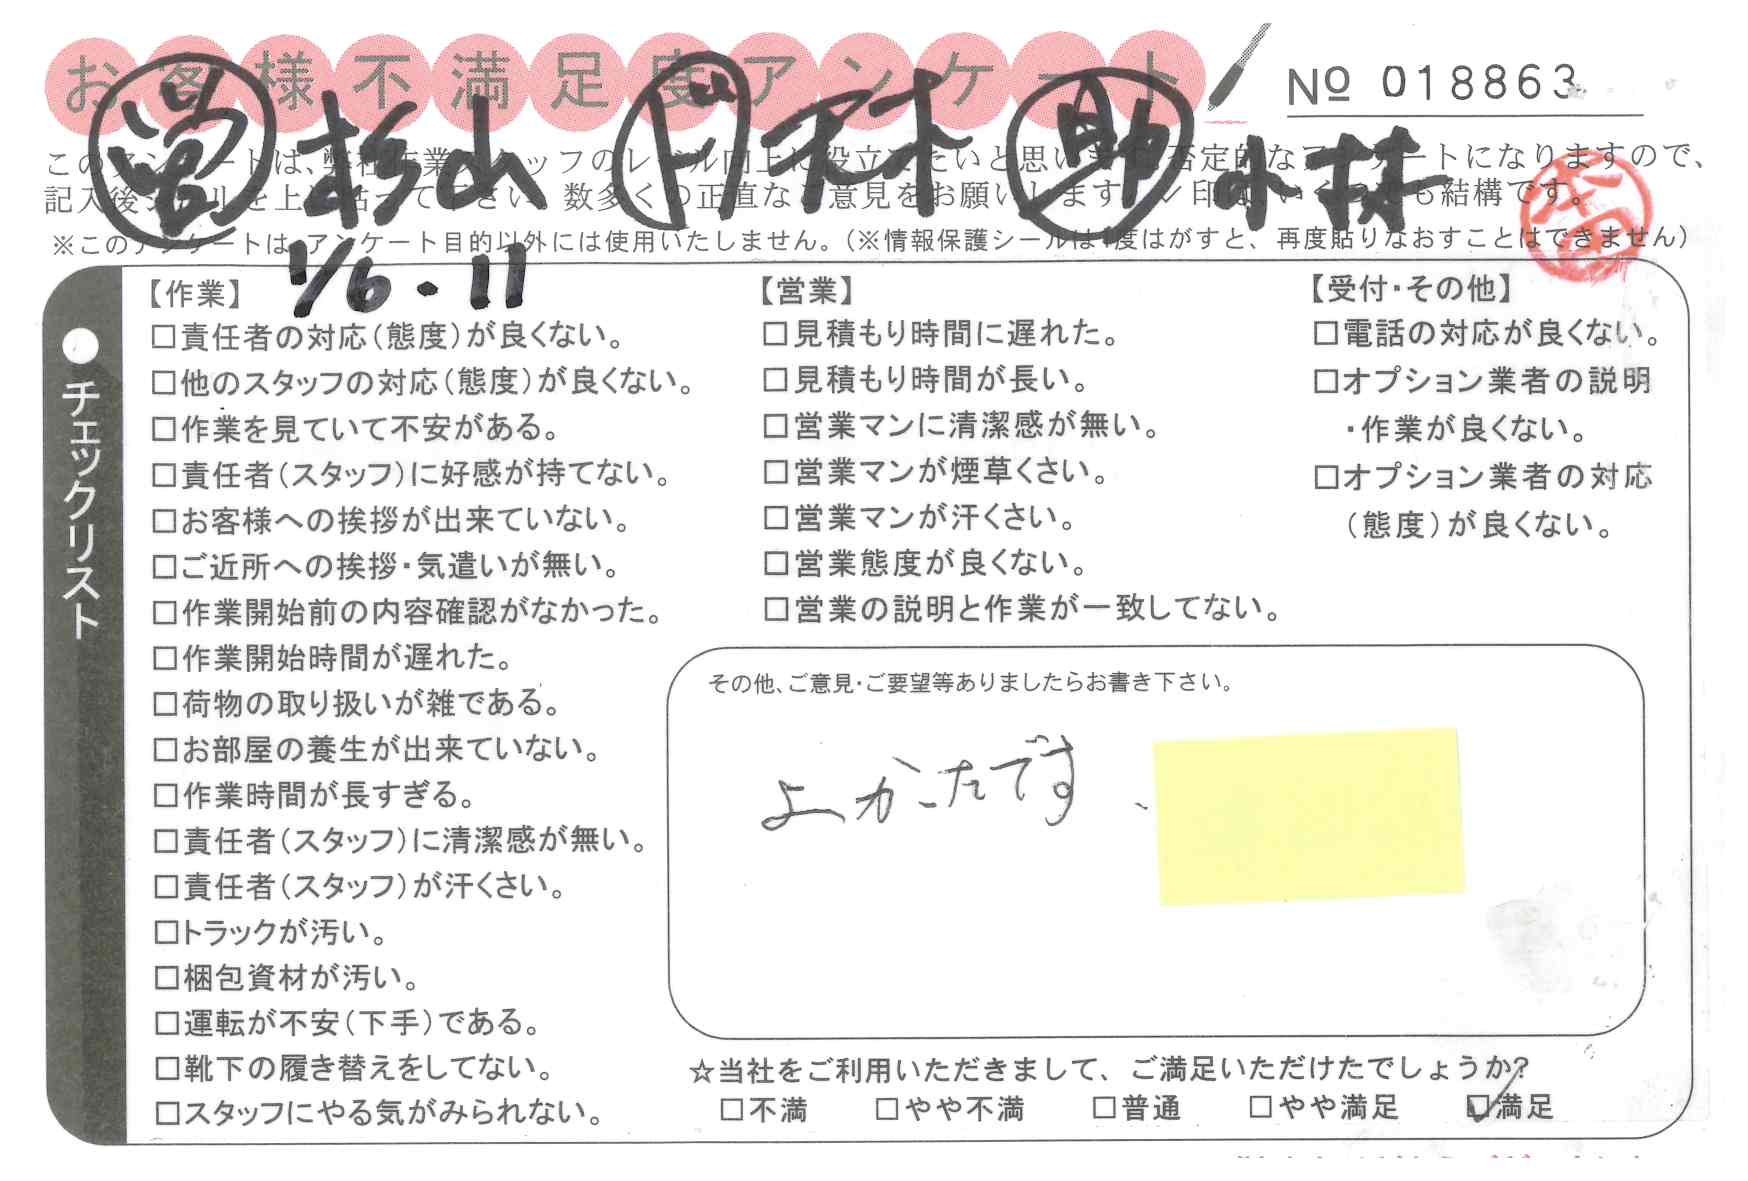 お客様不満足度アンケート
№ 018863
営 杉山 ド 天木 助 小林
このアンケートは、弊社作業スタッフのレベル向上に役立てたいと思います。否定的なアンケートになりますので、
記入後シールを上に貼って下さい。数多くの正直なご意見をお願いします。レ印はいくつでも結構です。
※このアンケートは、アンケート目的以外には使用いたしません。（※情報保護シールは1度はがすと、再度貼りなおすことはできません）
1/6・11
●チェックリスト
【作業】
□責任者の対応（態度）が良くない。
□他のスタッフの対応（態度）が良くない。
□作業を見ていて不安がある。
□責任者（スタッフ）に好感が持てない。
□お客様への挨拶が出来ていない。
□ご近所への挨拶・気遣いが無い。
□作業開始前の内容確認がなかった。
□作業開始時間が遅れた。
□荷物の取り扱いが雑である。
□お部屋の養生が出来ていない。
□作業時間が長すぎる。
□責任者（スタッフ）に清潔感が無い。
□責任者（スタッフ）が汗くさい。
□トラックが汚い。
□梱包資材が汚い。
□運転が不安（下手）である。
□靴下の履き替えをしてない。
□スタッフにやる気がみられない。
【営業】
□見積もり時間に遅れた。
□見積もり時間が長い。
□営業マンに清潔感が無い。
□営業マンが煙草くさい。
□営業マンが汗くさい。
□営業態度が良くない。
□営業の説明と作業が一致してない。
【受付・その他】
□電話の対応が良くない。
□オプション業者の説明
・作業が良くない。
□オプション業者の対応
（態度）が良くない。
その他、ご意見・ご要望等ありましたらお書き下さい。
よかったです
☆当社をご利用いただきまして、ご満足いただけたでしょうか?
□不満 □やや不満 □普通 □やや満足 ☑満足